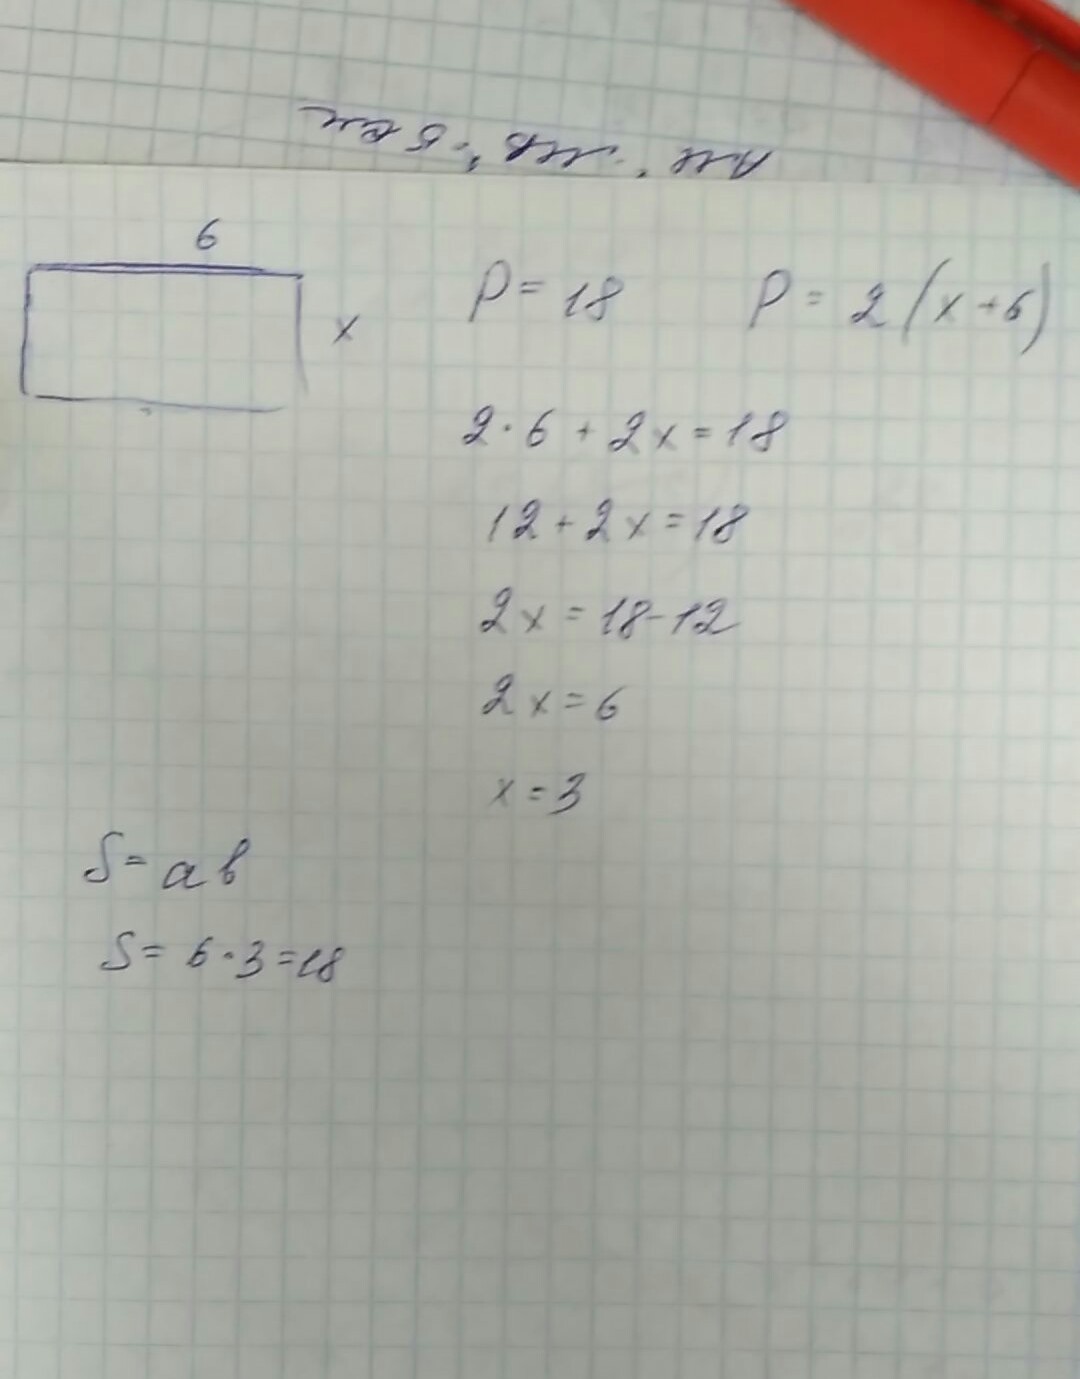 6
x
P = 18 P = 2 (x + 6)
2 · 6 + 2x = 18
12 + 2x = 18
2x = 18 - 12
2x = 6
x = 3
S = ab
S = 6 · 3 = 18